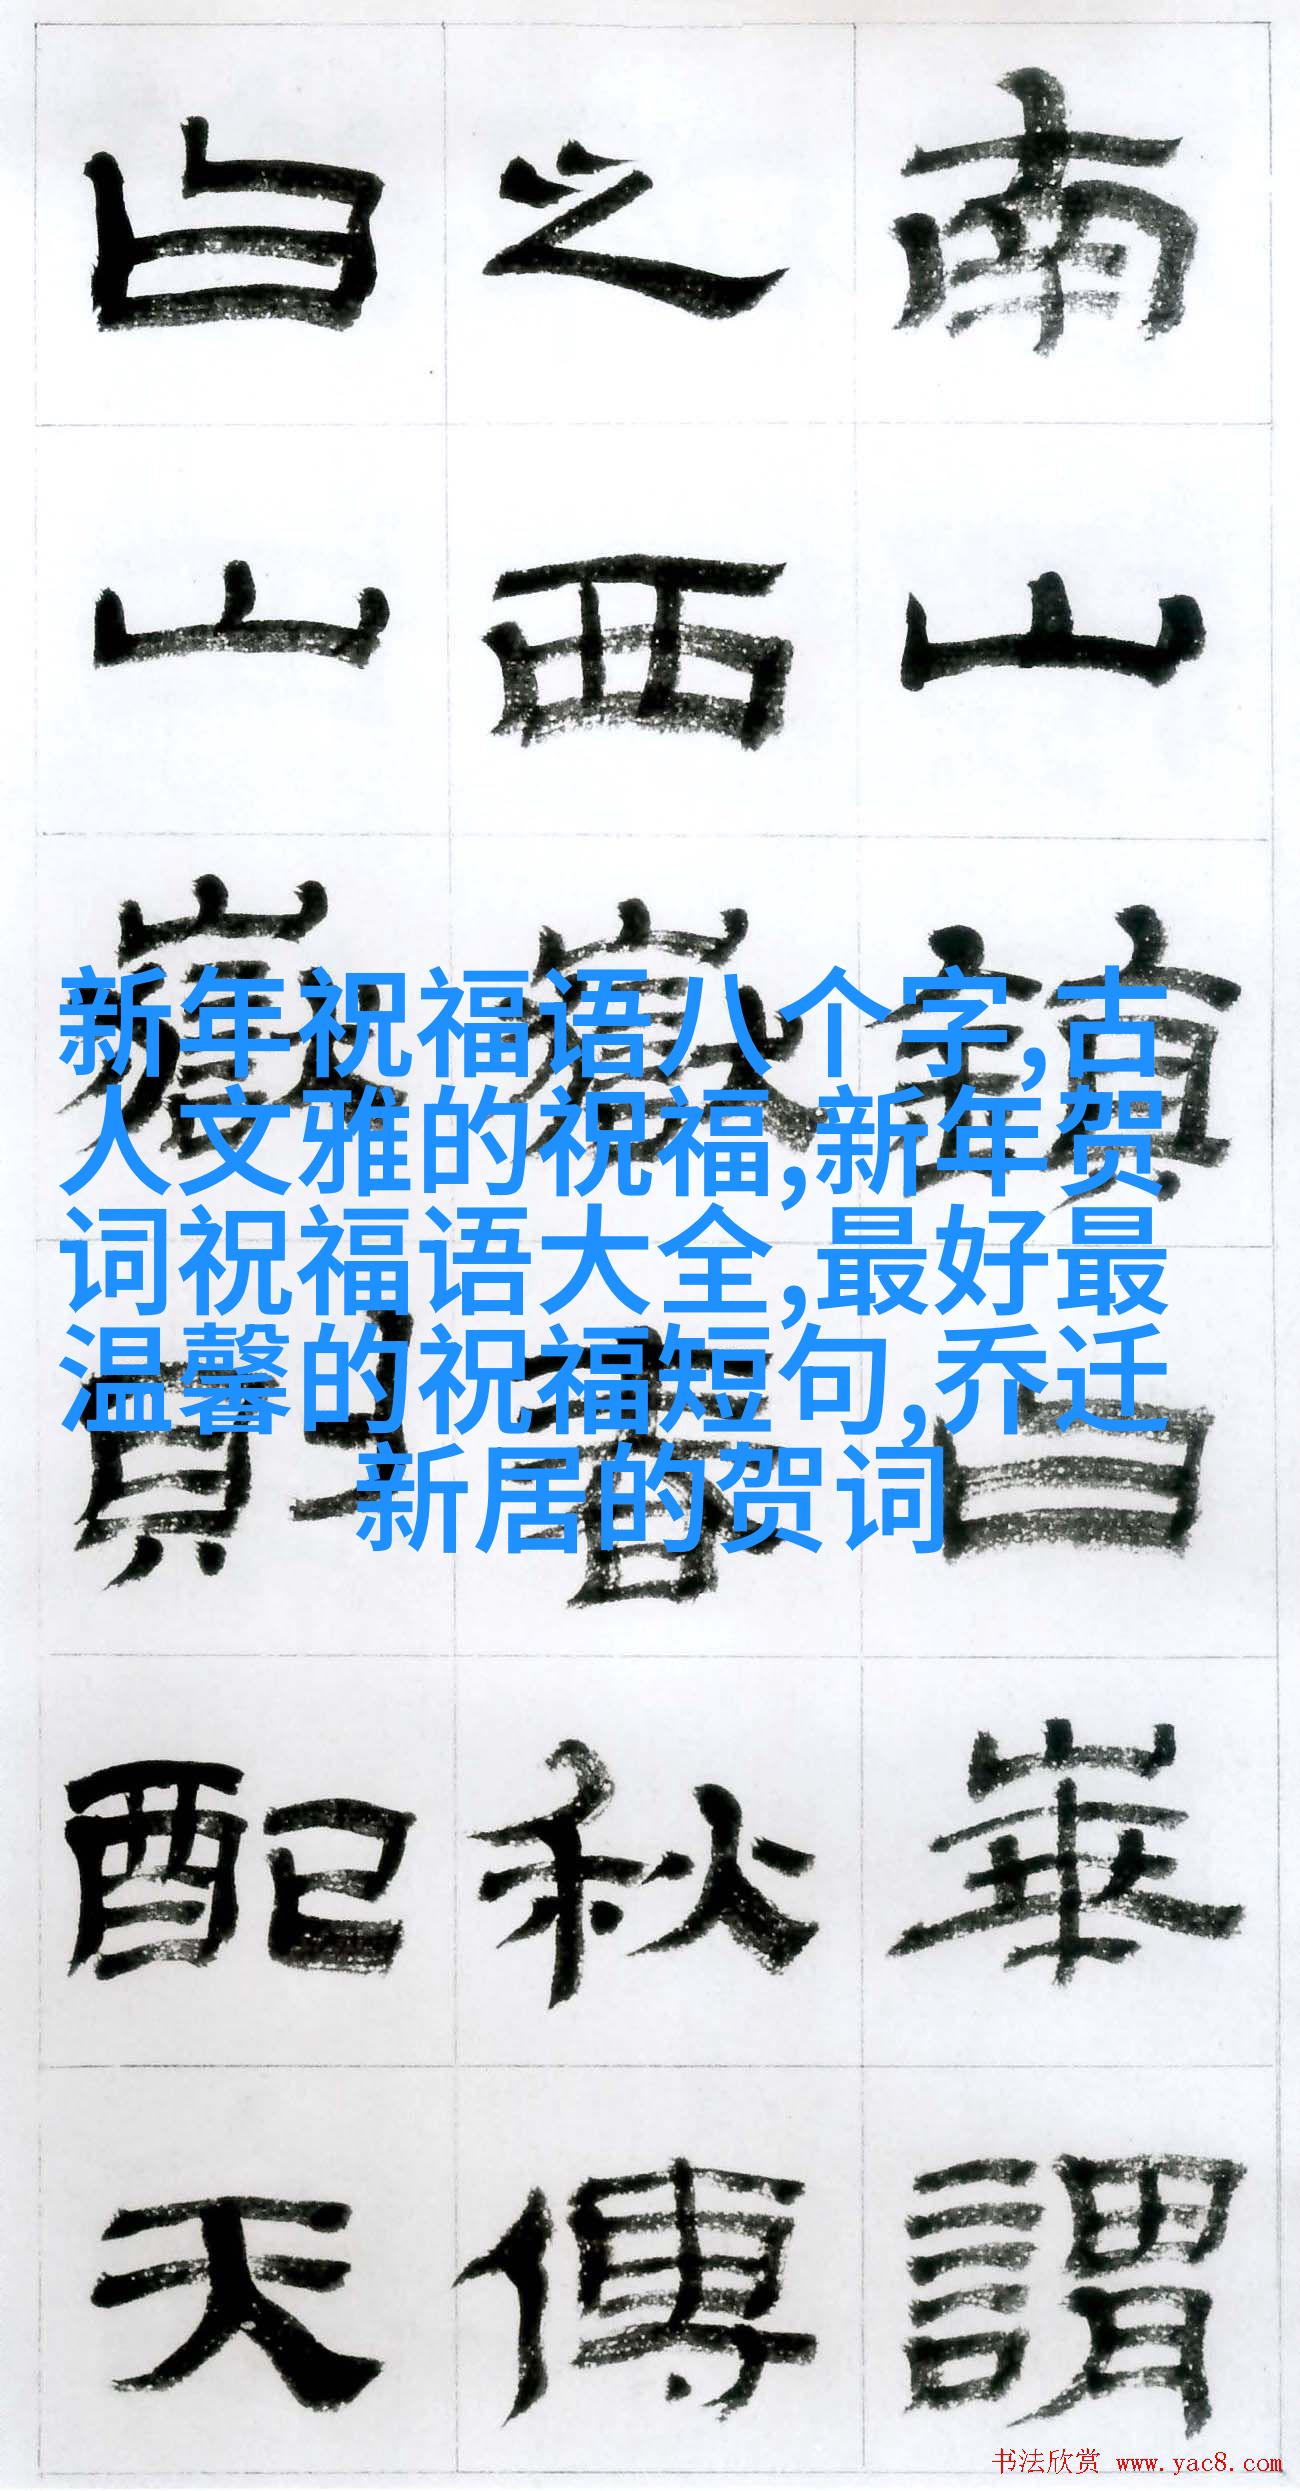 南山鎮曰崋謂
之西嶽春秋傳
曰山嶽則配天
新年祝福语八个字,古
人文雅的祝福,新年贺
词祝福语大全,最好最
温馨的祝福短句,乔迁
新居的贺词
书法欣赏 www.yac8.com